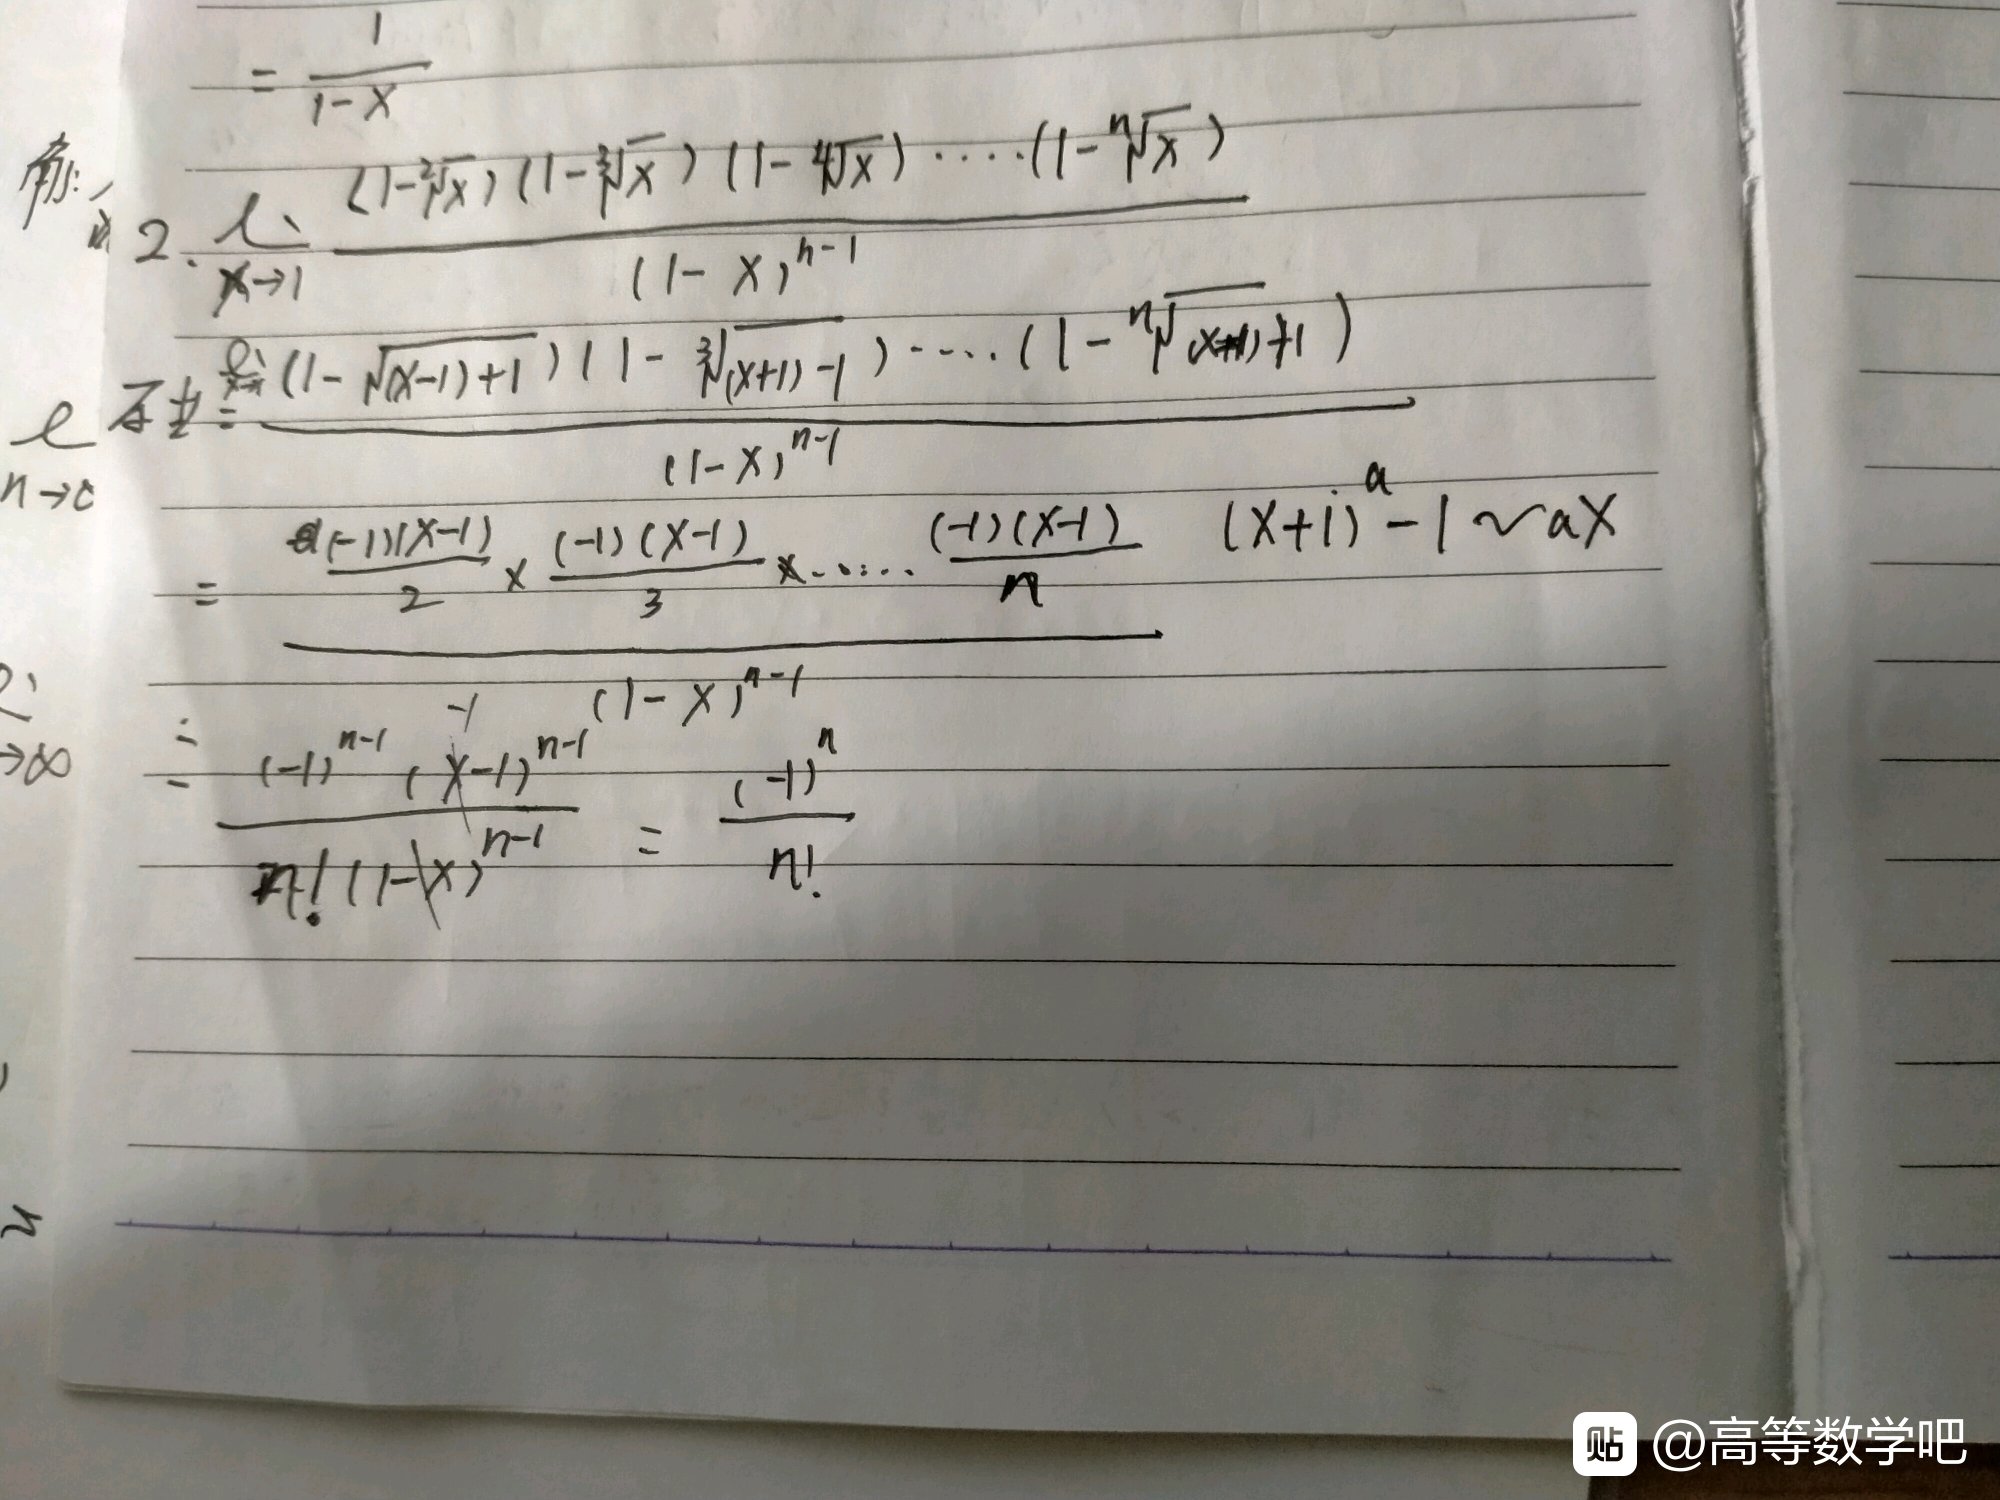 = 1/(1-x)
2. x→1 (1-²√x)(1-³√x)(1-⁴√x)····(1-ⁿ√x) / (1-x)^(n-1)
= (1-√((x-1)+1))(1-³√((x+1)-1))····(1-ⁿ√(+1)) / (1-x)^(n-1)
= (-1)(x-1)/2 × (-1)(x-1)/3 ×······ (-1)(x-1)/n / (1-x)^(n-1) (x+1)^a - 1 ~ ax
= (-1)^(n-1) (x-1)^(n-1) / n!(1-x)^(n-1) = (-1)^n / n!
-1
n→
→∞
贴 @高等数学吧